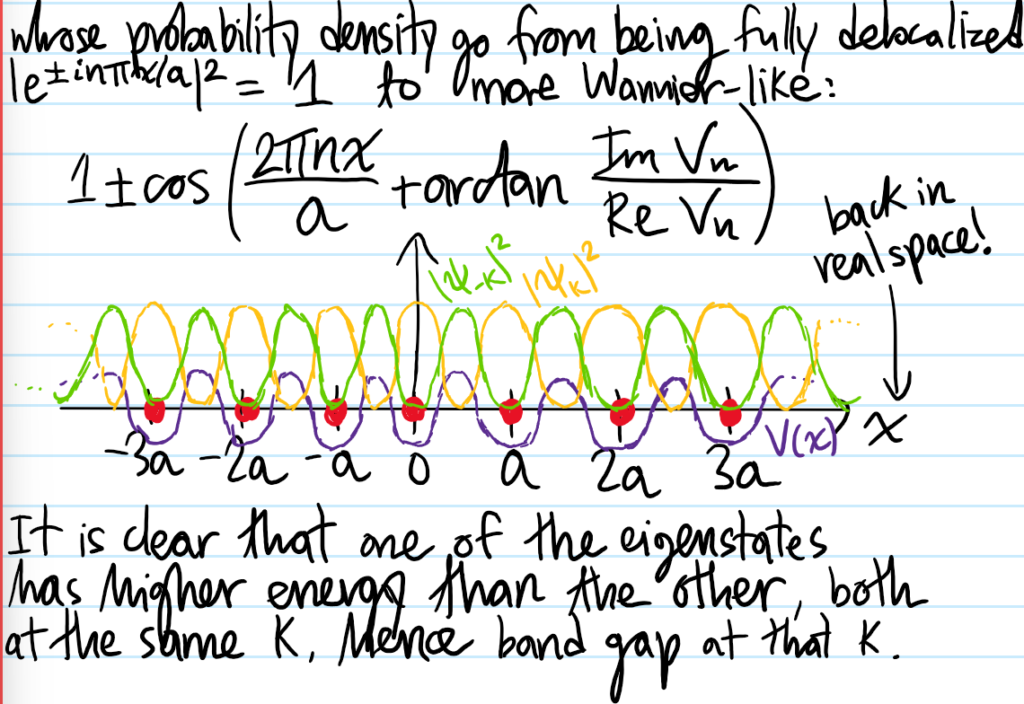 whose probability density go from being fully delocalized
|e^{±inπx/a}|² = 1 to more Wannier-like:
1 ± cos (2πnx/a + arctan Im Vₙ/Re Vₙ)
back in
real space!
|ψ₋ₖ|² |ψₖ|²
V(x) x
-3a -2a -a 0 a 2a 3a
It is clear that one of the eigenstates
has higher energy than the other, both
at the same K, hence band gap at that K.